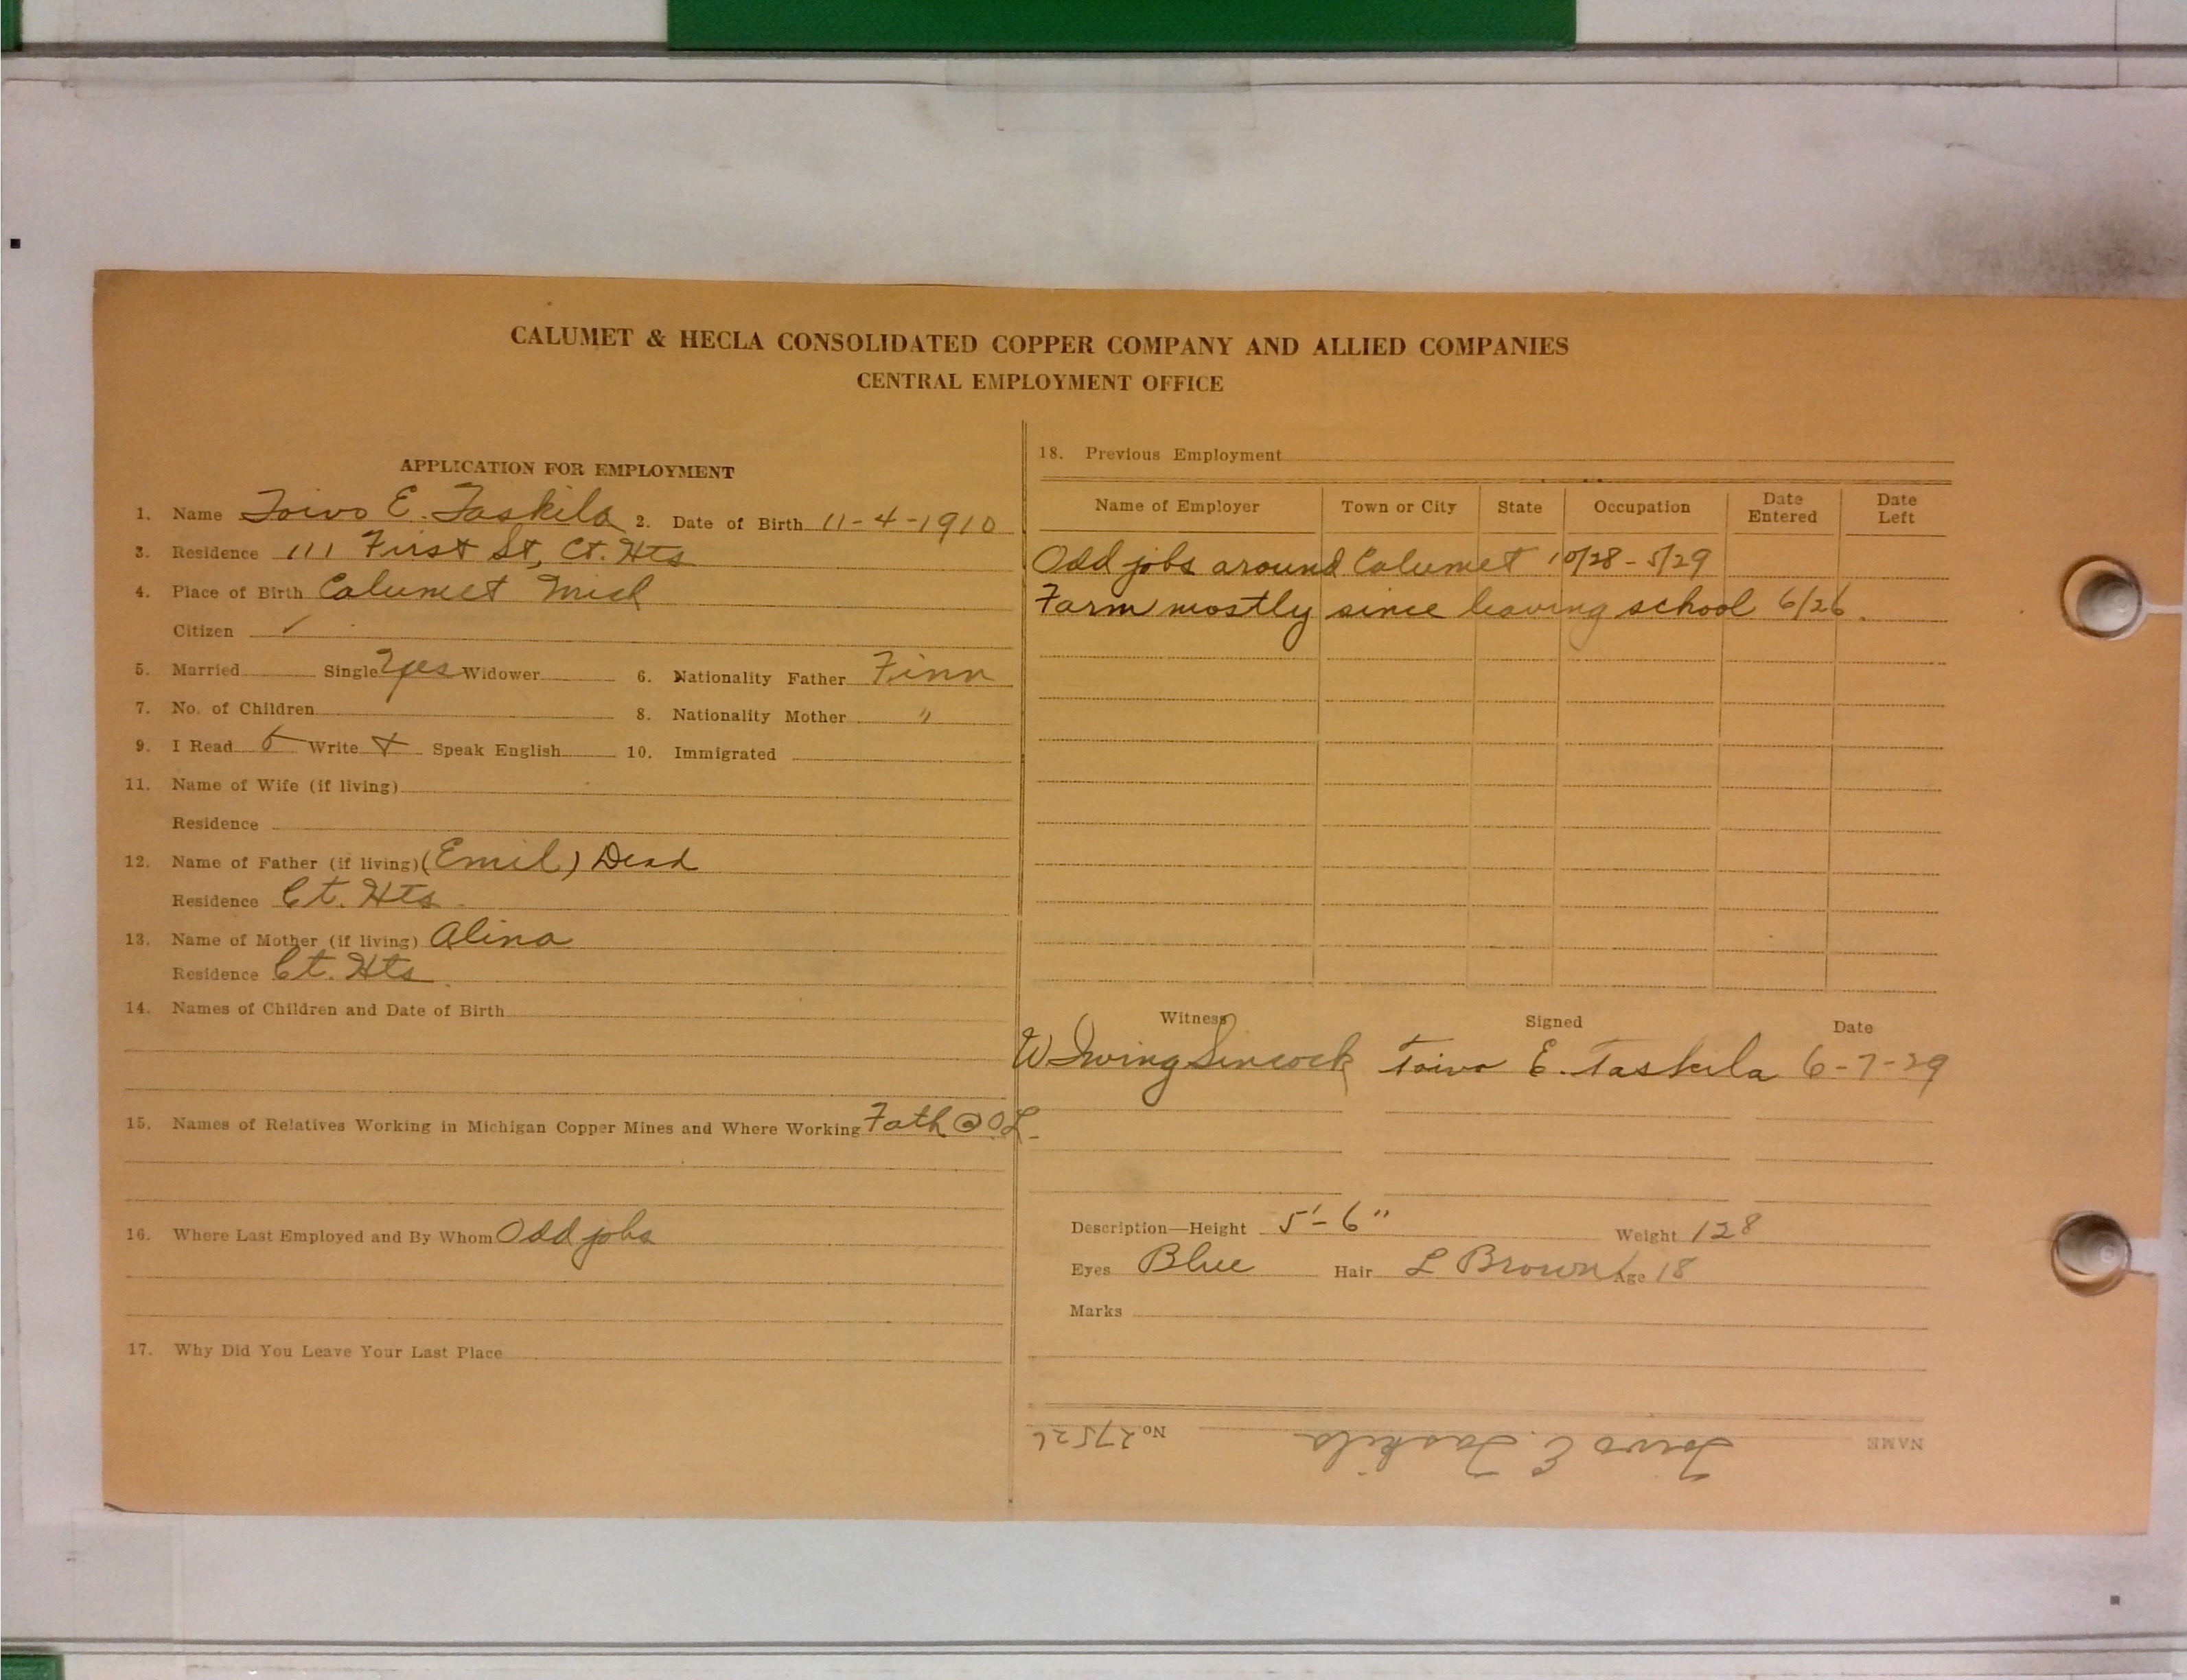 CALUMET & HECLA CONSOLIDATED COPPER COMPANY AND ALLIED COMPANIES
CENTRAL EMPLOYMENT OFFICE
APPLICATION FOR EMPLOYMENT
1. Name Toivo E. Taskila 2. Date of Birth 11-4-1910
3. Residence 111 First St, Ct. Hts
4. Place of Birth Calumet Mich
Citizen ✓
5. Married Single yes Widower 6. Nationality Father Finn
7. No. of Children 8. Nationality Mother "
9. I Read Write Speak English 10. Immigrated
11. Name of Wife (if living)
Residence
12. Name of Father (if living) (Emil) Dead
Residence Ct. Hts
13. Name of Mother (if living) Alina
Residence Ct. Hts
14. Names of Children and Date of Birth
15. Names of Relatives Working in Michigan Copper Mines and Where Working Fath @ O.L.
16. Where Last Employed and By Whom Odd jobs
17. Why Did You Leave Your Last Place
18. Previous Employment
Name of Employer Town or City State Occupation Date Entered Date Left
Odd jobs around Calumet 10/28 - 5/29
Farm mostly since leaving school 6/26.
Witness Signed Date
W Irving Sincock Toivo E. Taskila 6-7-29
Description—Height 5'-6" Weight 128
Eyes Blue Hair L Brown Age 18
Marks
NAME Toivo E. Taskila No. 27526